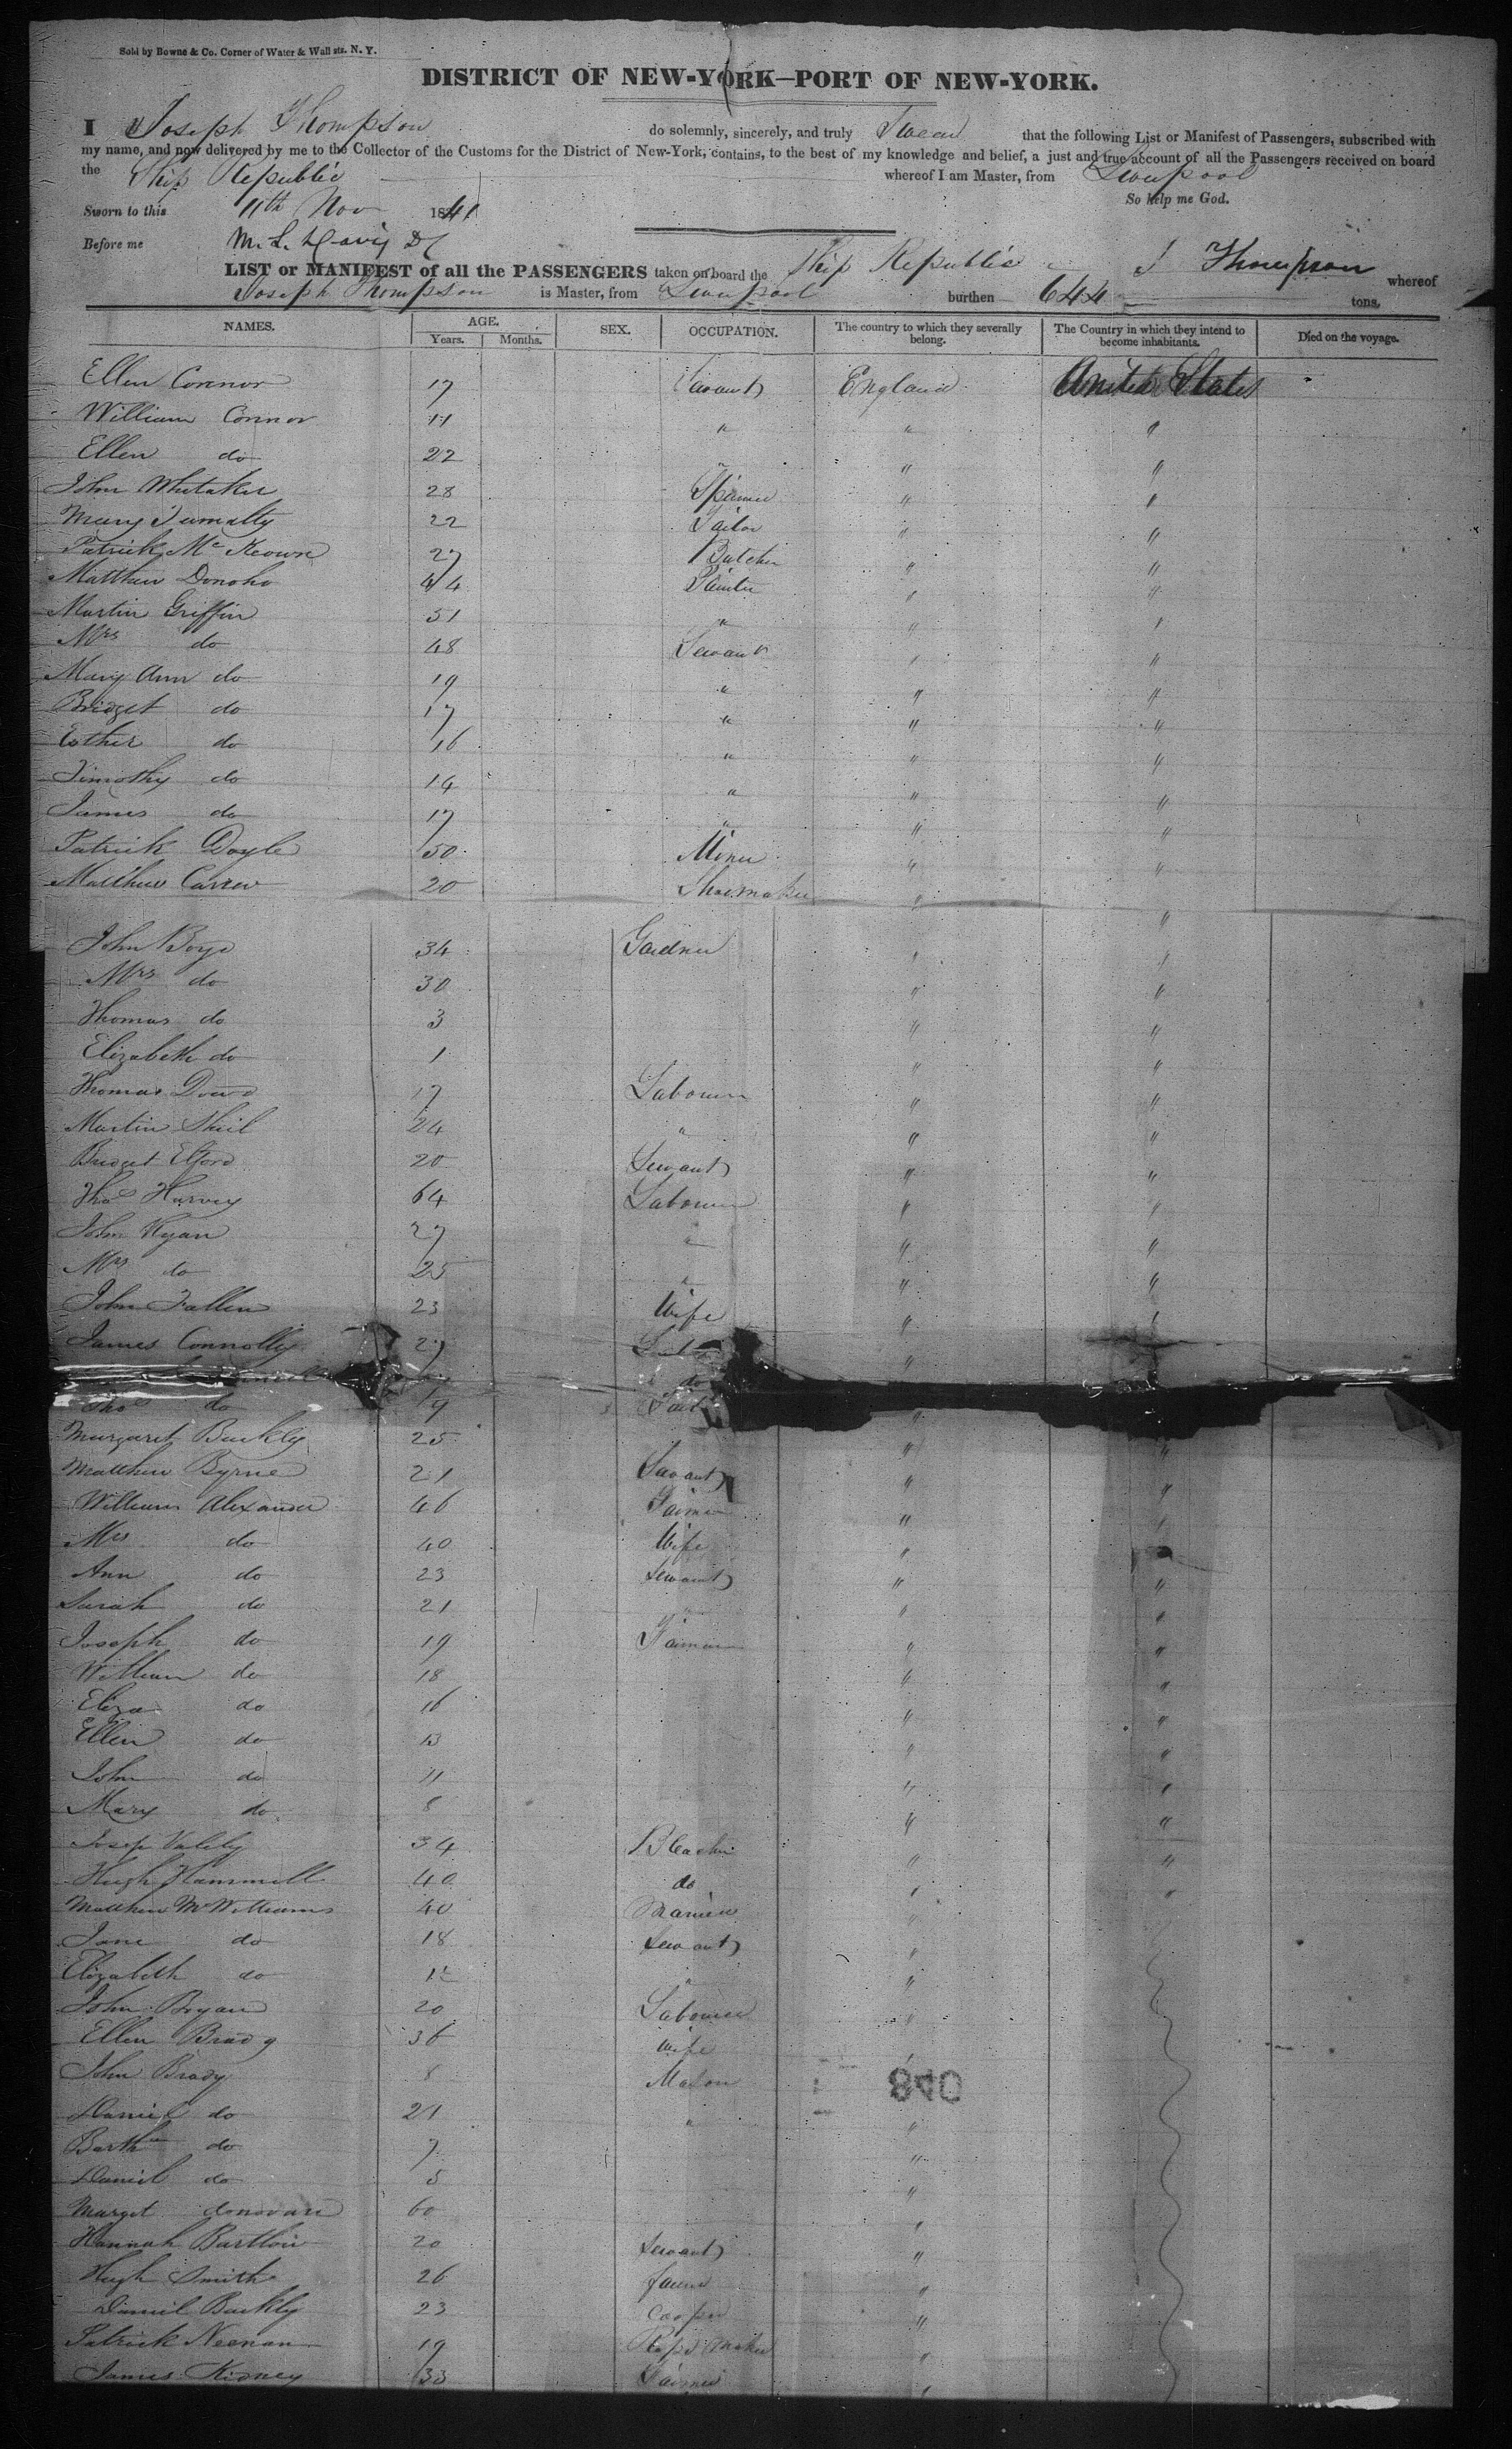 Sold by Bowne & Co. Corner of Water & Wall sts. N. Y.
DISTRICT OF NEW-YORK—PORT OF NEW-YORK.
I Joseph Thompson do solemnly, sincerely, and truly Swear that the following List or Manifest of Passengers, subscribed with
my name, and now delivered by me to the Collector of the Customs for the District of New-York, contains, to the best of my knowledge and belief, a just and true account of all the Passengers received on board
the Ship Republic whereof I am Master, from Liverpool
Sworn to this 11th Nov 1841 So help me God.
Before me M. L. Davis J Thompson
LIST or MANIFEST of all the PASSENGERS taken on board the Ship Republic whereof
Joseph Thompson is Master, from Liverpool burthen 644 tons.
NAMES. AGE. SEX. OCCUPATION. The country to which they severally belong. The Country in which they intend to become inhabitants. Died on the voyage.
Years. Months.
Ellen Connor 17 Servant England United States
William Connor 11 " " "
Ellen do 22 " "
John Whitaker 28 Spinner " "
Mary Tumalty 22 Tailor " "
Patrick McKeown 27 Butcher " "
Matthew Donoho 44 Painter " "
Martin Griffin 51 " " "
Mrs do 48 Servant " "
Mary Ann do 19 " " "
Bridget do 17 " " "
Esther do 16 " " "
Timothy do 14 " " "
James do 17 " " "
Patrick Doyle 50 Miner " "
Matthew Carrew 20 Shoemaker " "
John Boyd 34 Gardner " "
Mrs do 30 " "
Thomas do 3 " "
Elizabeth do 1 " "
Thomas Dowd 17 Labourer " "
Martin Shiel 24 " " "
Bridget Elford 20 Servant " "
Thos Harvey 64 Labourer " "
John Ryan 27 " " "
Mrs do 25 " " "
John Fallen 23 Wife " "
James Connolly 27 "
do
Thos do 19 "
Margaret Buckly 25 " "
Matthew Byrne 21 Servant " "
William Alexander 46 Farmer " "
Mrs do 40 Wife "
Ann do 23 Servant " "
Sarah do 21 " " "
Joseph do 19 Farmer " "
William do 18 " "
Eliza do 16 " "
Ellen do 13 " "
John do 11 " "
Mary do 8 " "
Josep 34 Bleacher " "
Hugh Hammill 40 do " "
Matthew McWilliams 40 "
Jane do 18 Servant "
Elizabeth do 12 " "
John Bryan 20 Labourer "
Ellen Brady 36 Wife "
John Brady 8 Mason
Daniel do 21 " "
Barthw do 7 "
Daniel do 5 "
Margt donovan 60 "
Hannah Bartlow 20 Servant "
Hugh Smith 26 farmer "
Daniel Buckly 23 Cooper "
Patrick Neenan 19 Rope Maker "
James Kidney 33 Farmer "